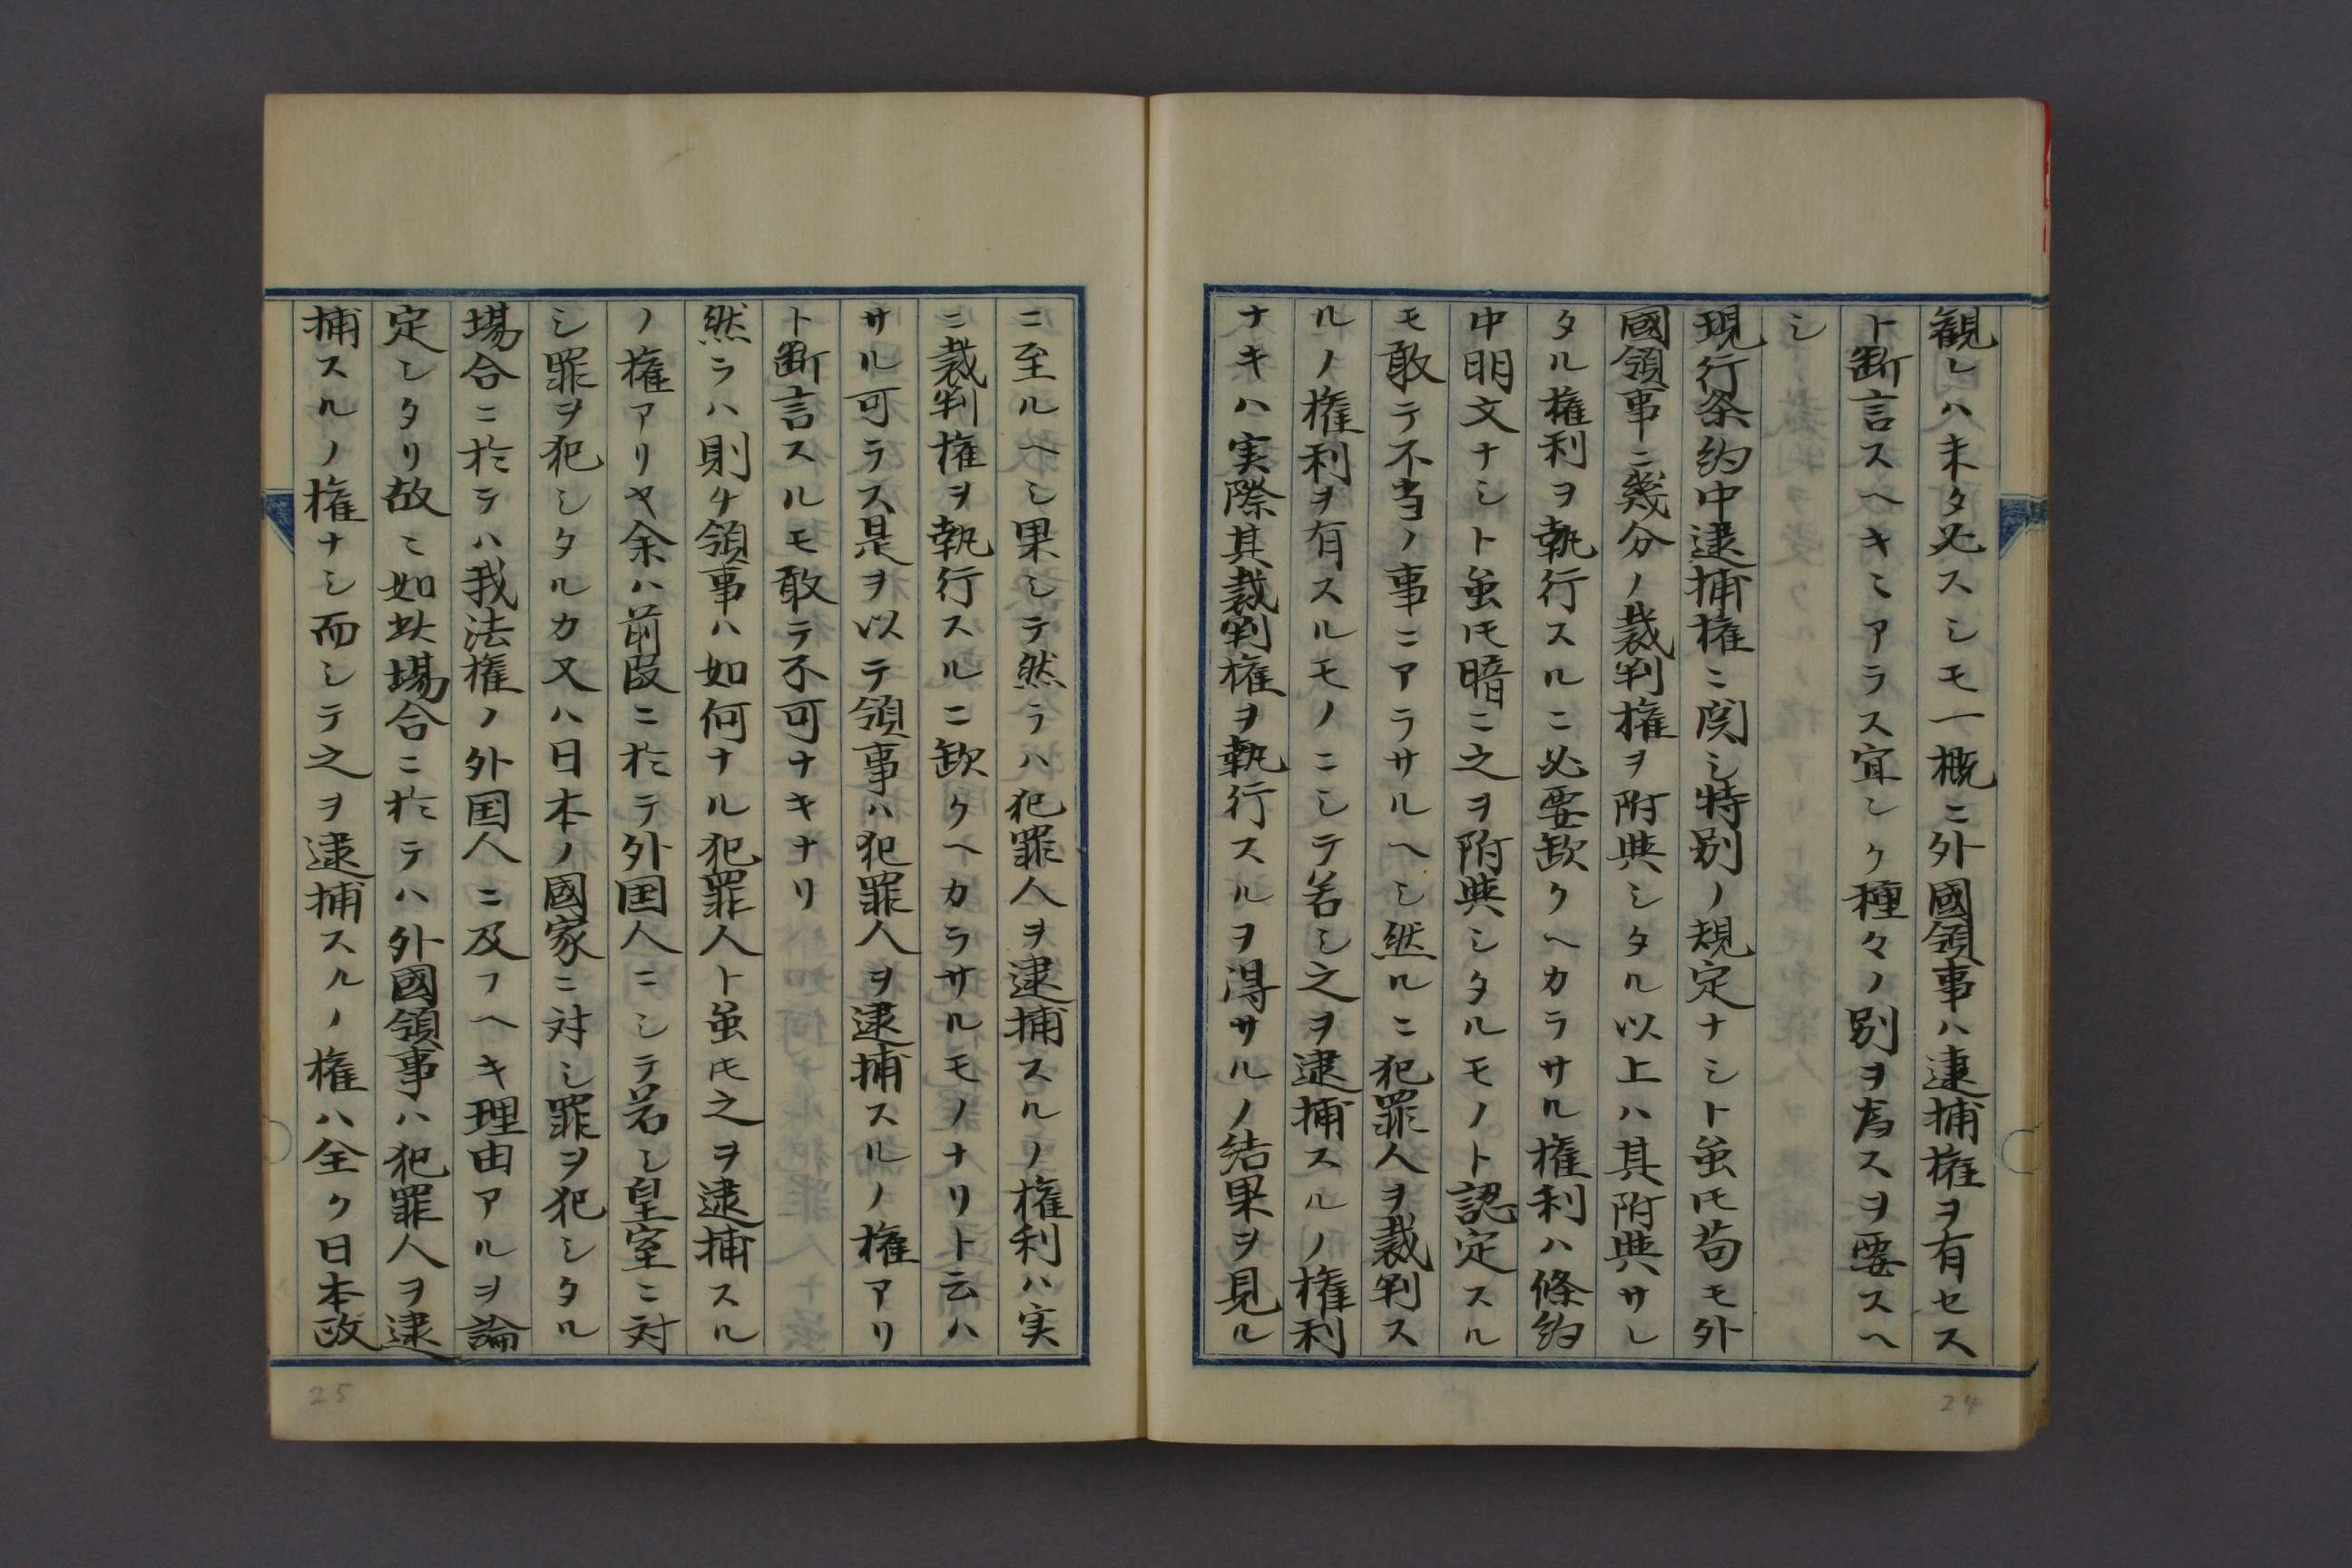 観レハ未タ必スシモ一概ニ外國領事ハ逮捕権ヲ有セス
ト断言スヘキニアラス宜シク種々ノ別ヲ為スヲ要スヘ
シ
現行条約中逮捕権ニ関シ特別ノ規定ナシト虽𪜈苟モ外
國領事ニ幾分ノ裁判権ヲ附与シタル以上ハ其附与サレ
タル権利ヲ執行スルニ必要欠クヘカラサル権利ハ條約
中明文ナシト虽𪜈暗ニ之ヲ附与シタルモノト認定スル
モ敢テ不当ノ事ニアラサルヘシ然ルニ犯罪人ヲ裁判ス
ルノ権利ヲ有スルモノニシテ若シ之ヲ逮捕スルノ権利
ナキハ実際其裁判権ヲ執行スルヲ得サルノ結果ヲ見ル
ニ至ルヘシ果シテ然ラハ犯罪人ヲ逮捕スルノ権利ハ実
ニ裁判権ヲ執行スルニ欠クヘカラサルモノナリト云ハ
サル可ラス是ヲ以テ領事ハ犯罪人ヲ逮捕スルノ権アリ
ト断言スルモ敢テ不可ナキナリ
然ラハ則チ領事ハ如何ナル犯罪人ト虽𪜈之ヲ逮捕スル
ノ権アリヤ余ハ前段ニ於テ外国人ニシテ若シ皇室ニ対
シ罪ヲ犯シタルカ又ハ日本ノ國家ニ対シ罪ヲ犯シタル
場合ニ於テハ我法権ノ外国人ニ及フヘキ理由アルヲ論
定シタリ故ニ如此場合ニ於テハ外國領事ハ犯罪人ヲ逮
捕スルノ権ナシ而シテ之ヲ逮捕スルノ権ハ全ク日本政
24
25